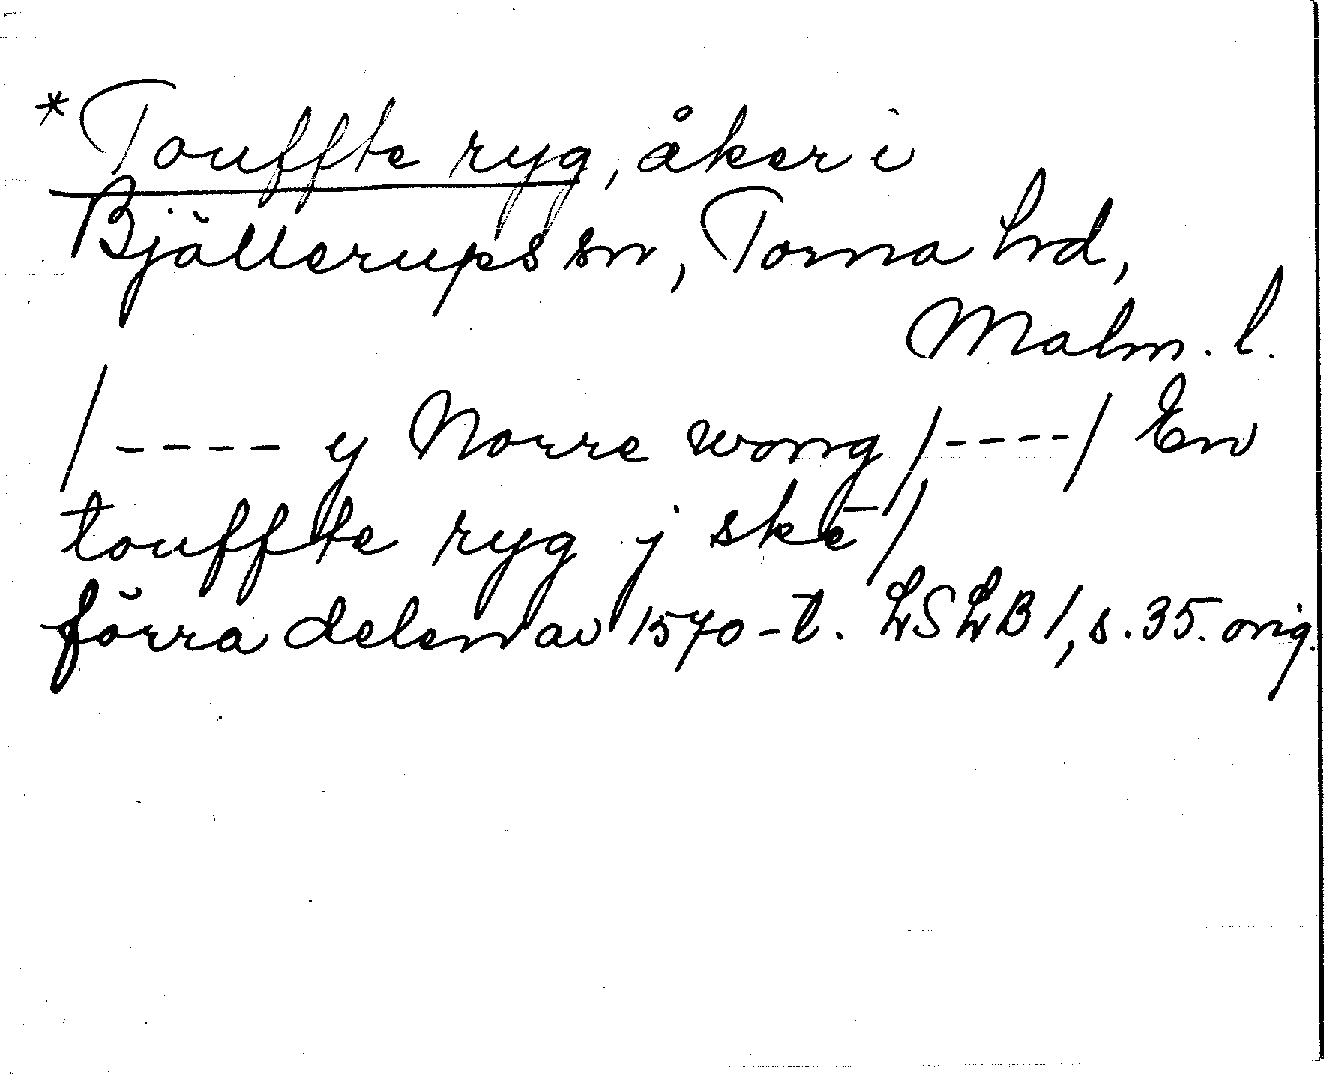 *Touffte ryg, åker i
Bjällerups sn, Torna hd,
Malm. l.
/---- y Norre wong /----/ En
touffte ryg j skē/
förra delen av 1570-t. LSLB 1, s. 35. orig.